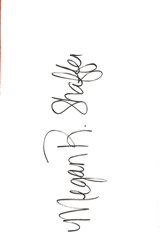 Megan R. Shaffer